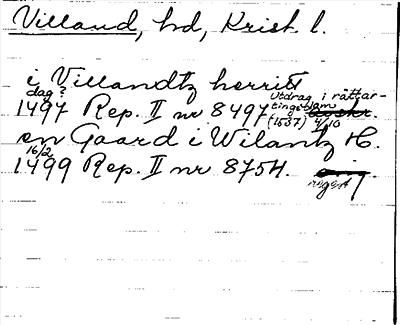 Villand, hd, Krist. l.
i Villandtz herritt
dag?
1497 Rep. II nr 8497 Utdrag i rättar-
tingsdom
(1537) 4/10
en Gaard i Wilantz H.
16/2
1499 Rep. II nr 8754.
regest